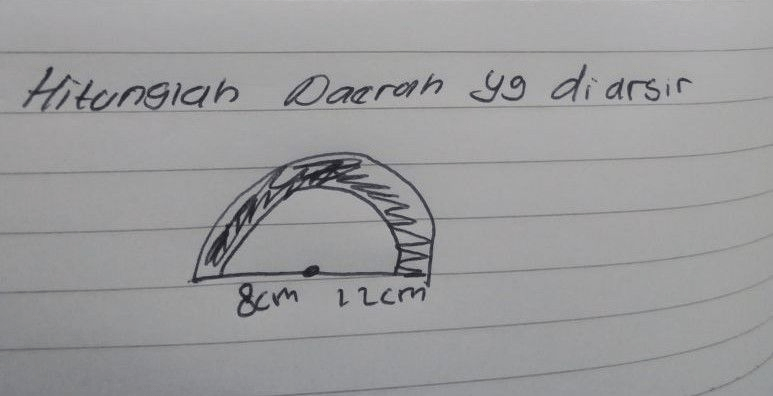 Hitunglah Daerah yg diarsir
8cm 12cm